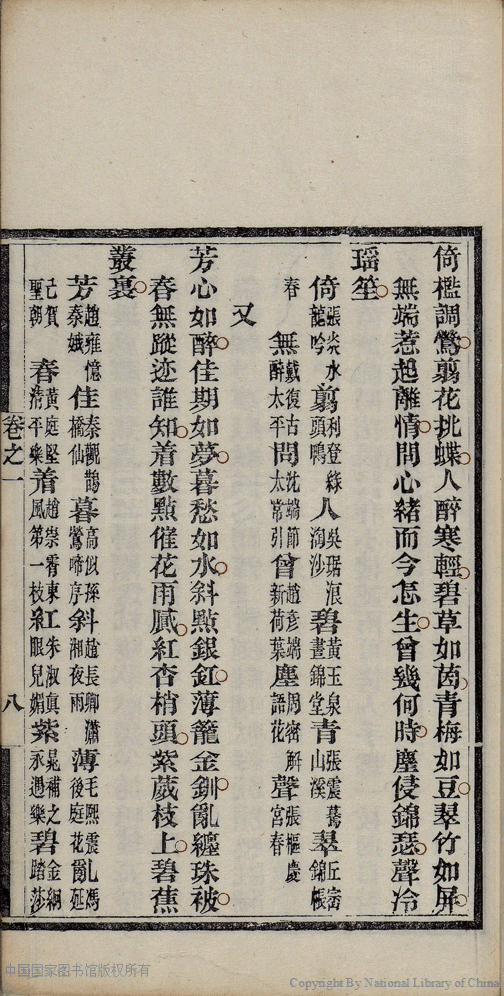 倚檻調鶯翦花挑蝶人醉寒輕碧草如茵青梅如豆翠竹如屏
無端惹起離情問心緒而今怎生曾幾何時塵侵錦瑟聲冷
瑶笙
倚張炎水龍吟翦利登頭鴨綠人吳琚浪淘沙碧黃玉泉晝錦堂青張震驀山溪翠丘崈錦帳
春無戴復古醉太平問沈端節太常引曾趙彥端新荷葉塵周密解語花聲張樞慶宮春
又
芳心如醉佳期如夢暮愁如水斜點銀釭薄籠金釧亂纏珠被
春無蹤迹誰知着數點催花雨膩紅杏梢頭紫葳枝上碧蕉
叢裏
芳趙雍憶秦娥佳秦觀鵲橋仙暮高似孫鶯啼序斜趙長卿瀟湘夜雨薄毛熙震後庭花亂馮延
巳賀聖朝春黃庭堅清平樂着趙崇霄東風第一枝紅朱淑眞眼兒媚紫晁補之永遇樂碧金絅踏莎
卷之一
八
中国国家图书馆版权所有
Copyright By National Library of China